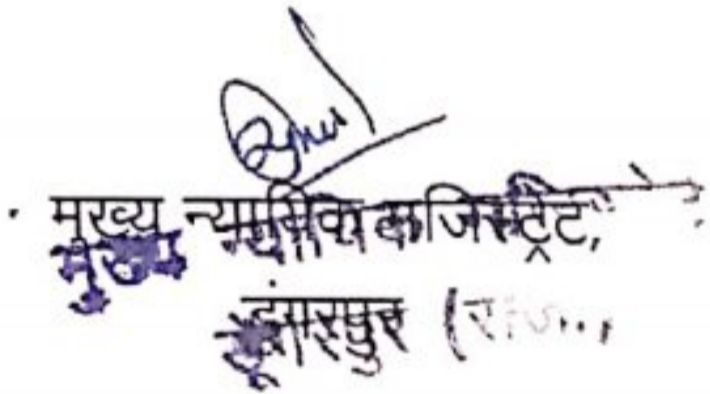 मुख्य न्यायिक मजिस्ट्रेट,
डूंगरपुर (राज.